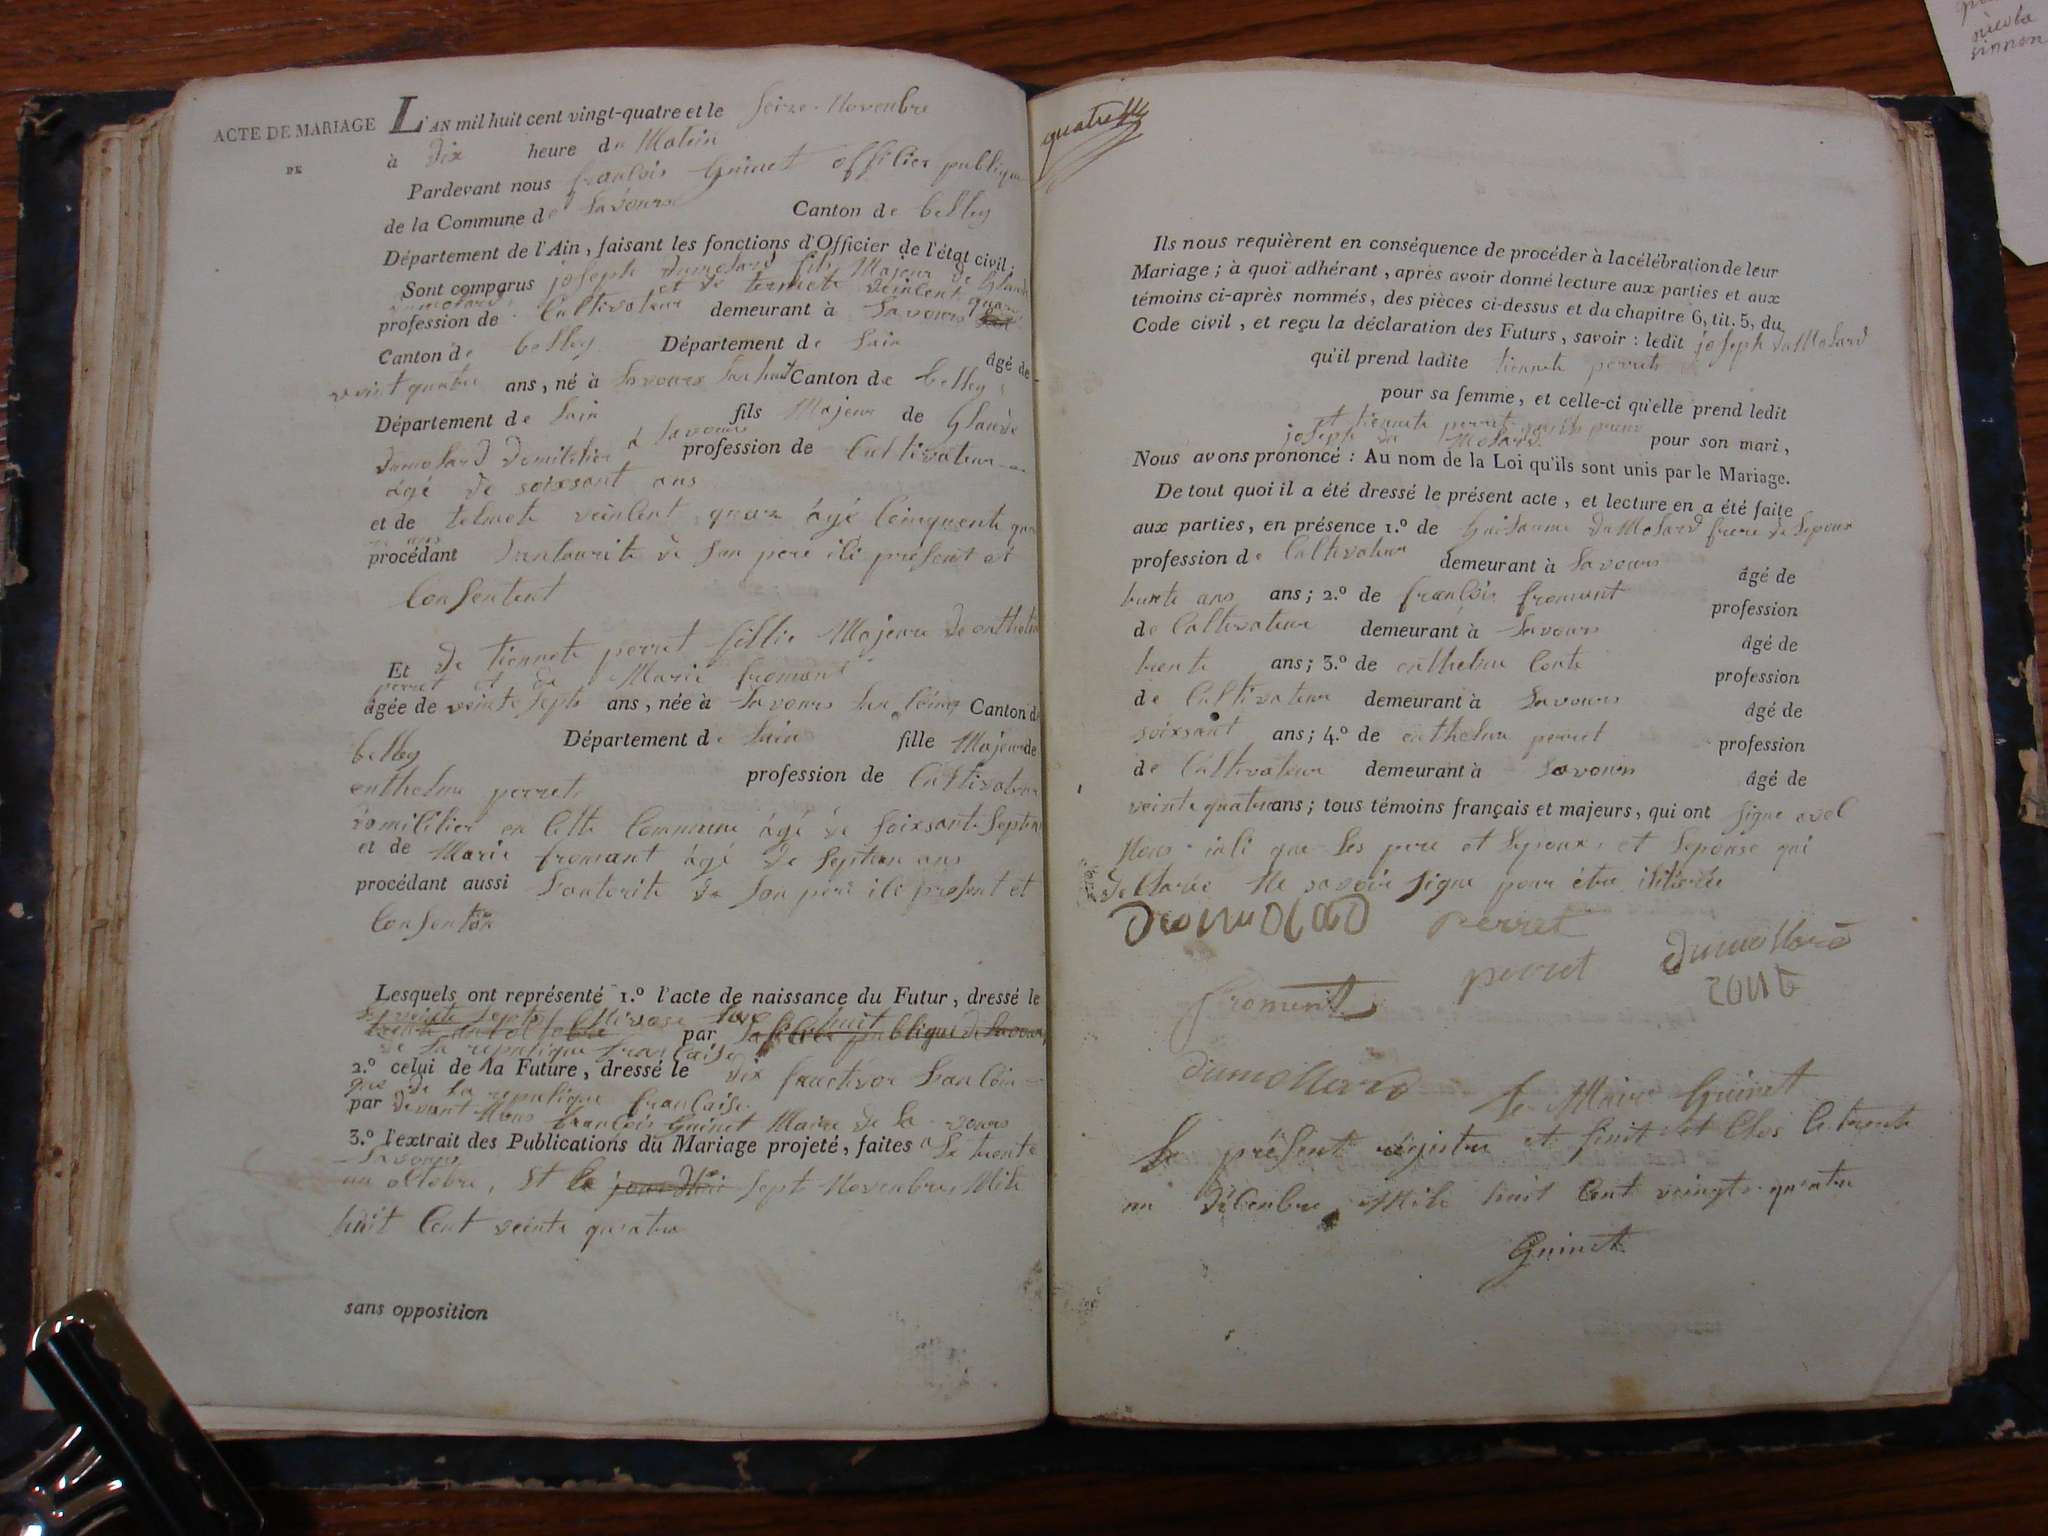 ACTE DE MARIAGE
DE
L'AN mil huit cent vingt-quatre et le Seize Novenbre
à Dix heure du Matin
Pardevant nous francois Guinet offilier publique
de la Commune de Savours Canton de belley
Département de l'Ain, faisant les fonctions d'Officier de l'état civil;
Sont comparus joseph dumolard fils Majeur de Glaude
dumolard et de telmete veinlent quaz
profession de Cultivateur demeurant à Savours
Canton de belley Département de Lain âgé de
veint quatre ans, né à Savours Lan huit Canton de belley
Département de Lain fils Majeur de Glaude
dumolard domicilier à Savours profession de Cultivateur
âgé de soixsant ans
et de telmete veinlent quaz âgé Cinquente
procédant Lautourite de Son pere ili présent et
Consentent
Et de tiennete perret fillie Majeure de enthelme
perret et de Marie fromant
âgée de veinte Septs ans, née à Savours Lan Cinq Canton de
belley Département de Lain fille Majeur de
enthelme perret profession de Cultivateur
domicilier en Cette Commune âgé de Soixsante Sept
et de Marie fromant âgé de Septan ans
procédant aussi Lautorite de Son pere ili present et
Consentan
Lesquels ont représenté 1.º l'acte de naissance du Futur, dressé le
le veinte Septs Nivose Lan huit
par publique de Savours
de la republique francaise
2.º celui de la Future, dressé le dix fructidor Lan Cin-
que de la republique francaise
par devant Nous francois Guinet Maire de Sa-vours
3.º l'extrait des Publications du Mariage projeté, faites a
Savours Le trente
un octobre, Et le Sept Novenbre Mile
huit Cent veinte quatre
sans opposition
Ils nous requièrent en conséquence de procéder à la célébration de leur
Mariage; à quoi adhérant, après avoir donné lecture aux parties et aux
témoins ci-après nommés, des pièces ci-dessus et du chapitre 6, tit. 5, du
Code civil, et reçu la déclaration des Futurs, savoir: ledit joseph duMolard
qu'il prend ladite tiennete perret
pour sa femme, et celle-ci qu'elle prend ledit
et tiennete perret
joseph du Molard pour son mari,
Nous avons prononcé: Au nom de la Loi qu'ils sont unis par le Mariage.
De tout quoi il a été dressé le présent acte, et lecture en a été faite
aux parties, en présence 1.º de Guilaume duMolard frere de Lepoux
profession de Cultivateur demeurant à Savours âgé de
trente ans ans; 2.º de francois fromant profession
de Cultivateur demeurant à Savours âgé de
trente ans; 3.º de enthelme Conte profession
de Cultivateur demeurant à Savours âgé de
soixsant ans; 4.º de enthelme perret profession
de Cultivateur demeurant à Savours âgé de
veinte quatre ans; tous témoins français et majeurs, qui ont Signe avec
Nous que Les pere et Lepoux et Lepouse qui
declarée Ne savoir Signe pour être
Perret
dumollard
perret
froment
dumollard
Le Maire Guinet
Le présent registre et finit et Clos Le trente
un Décenbre Mile huit Cent veingt quatre
Guinet